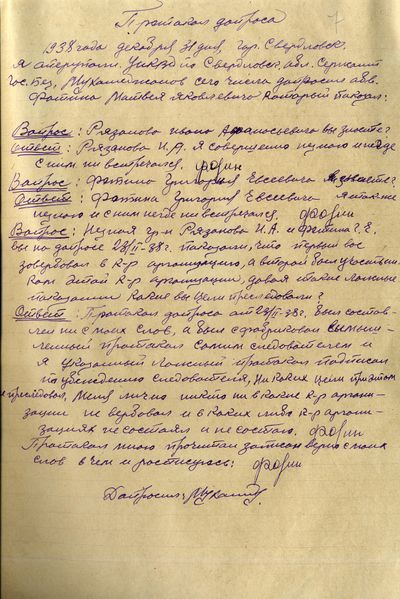 Протакал допроса
7
1938 года декабря 31 дня, гор. Свердловск.
Я оперупол. УНКВД по Свердловск. обл. Сержант
Гос. Без. Мухаметжанов сего числа допросил обв.
Фотина Матвея Яковлевича который показал:
Вопрос: Рязанова Ивана Афанасьевича вы знаете?
Ответ: Рязанова И.А. я совершенно не знаю и нигде
с ним не встречался. Фотин
Вопрос: Фотина Григория Евсеевича знаете?
Ответ: Фотина Григория Евсеевича я также
не знаю и с ним негде не встречался. Фотин
Вопрос: Не зная гр-н Рязанова И.А. и Фотина Г.Е.
Вы на допросе 28/II-38г. показали, что первый вас
завербовал в к-р организацию, а второй был участни-
ком этой к-р организации, давая такие ложные
показания какие вы цели преследовали?
Ответ: Протакал допроса от 28/II-38г. был состав-
лен не с моих слов, а был сфабрикован
протакал самим следователем и
я указанный ложный протакал подписал
по убеждению следователя, ни каких целей при этом
не преследовал. Меня лично никто ни в какие к-р органи-
зации не вербовал и в каких либо к-р органи-
зациях не состоял и не состою. Фотин
Протакал мною прочитан записан верно с моих
слов в чем и расписуюсь: Фотин
Допросил: